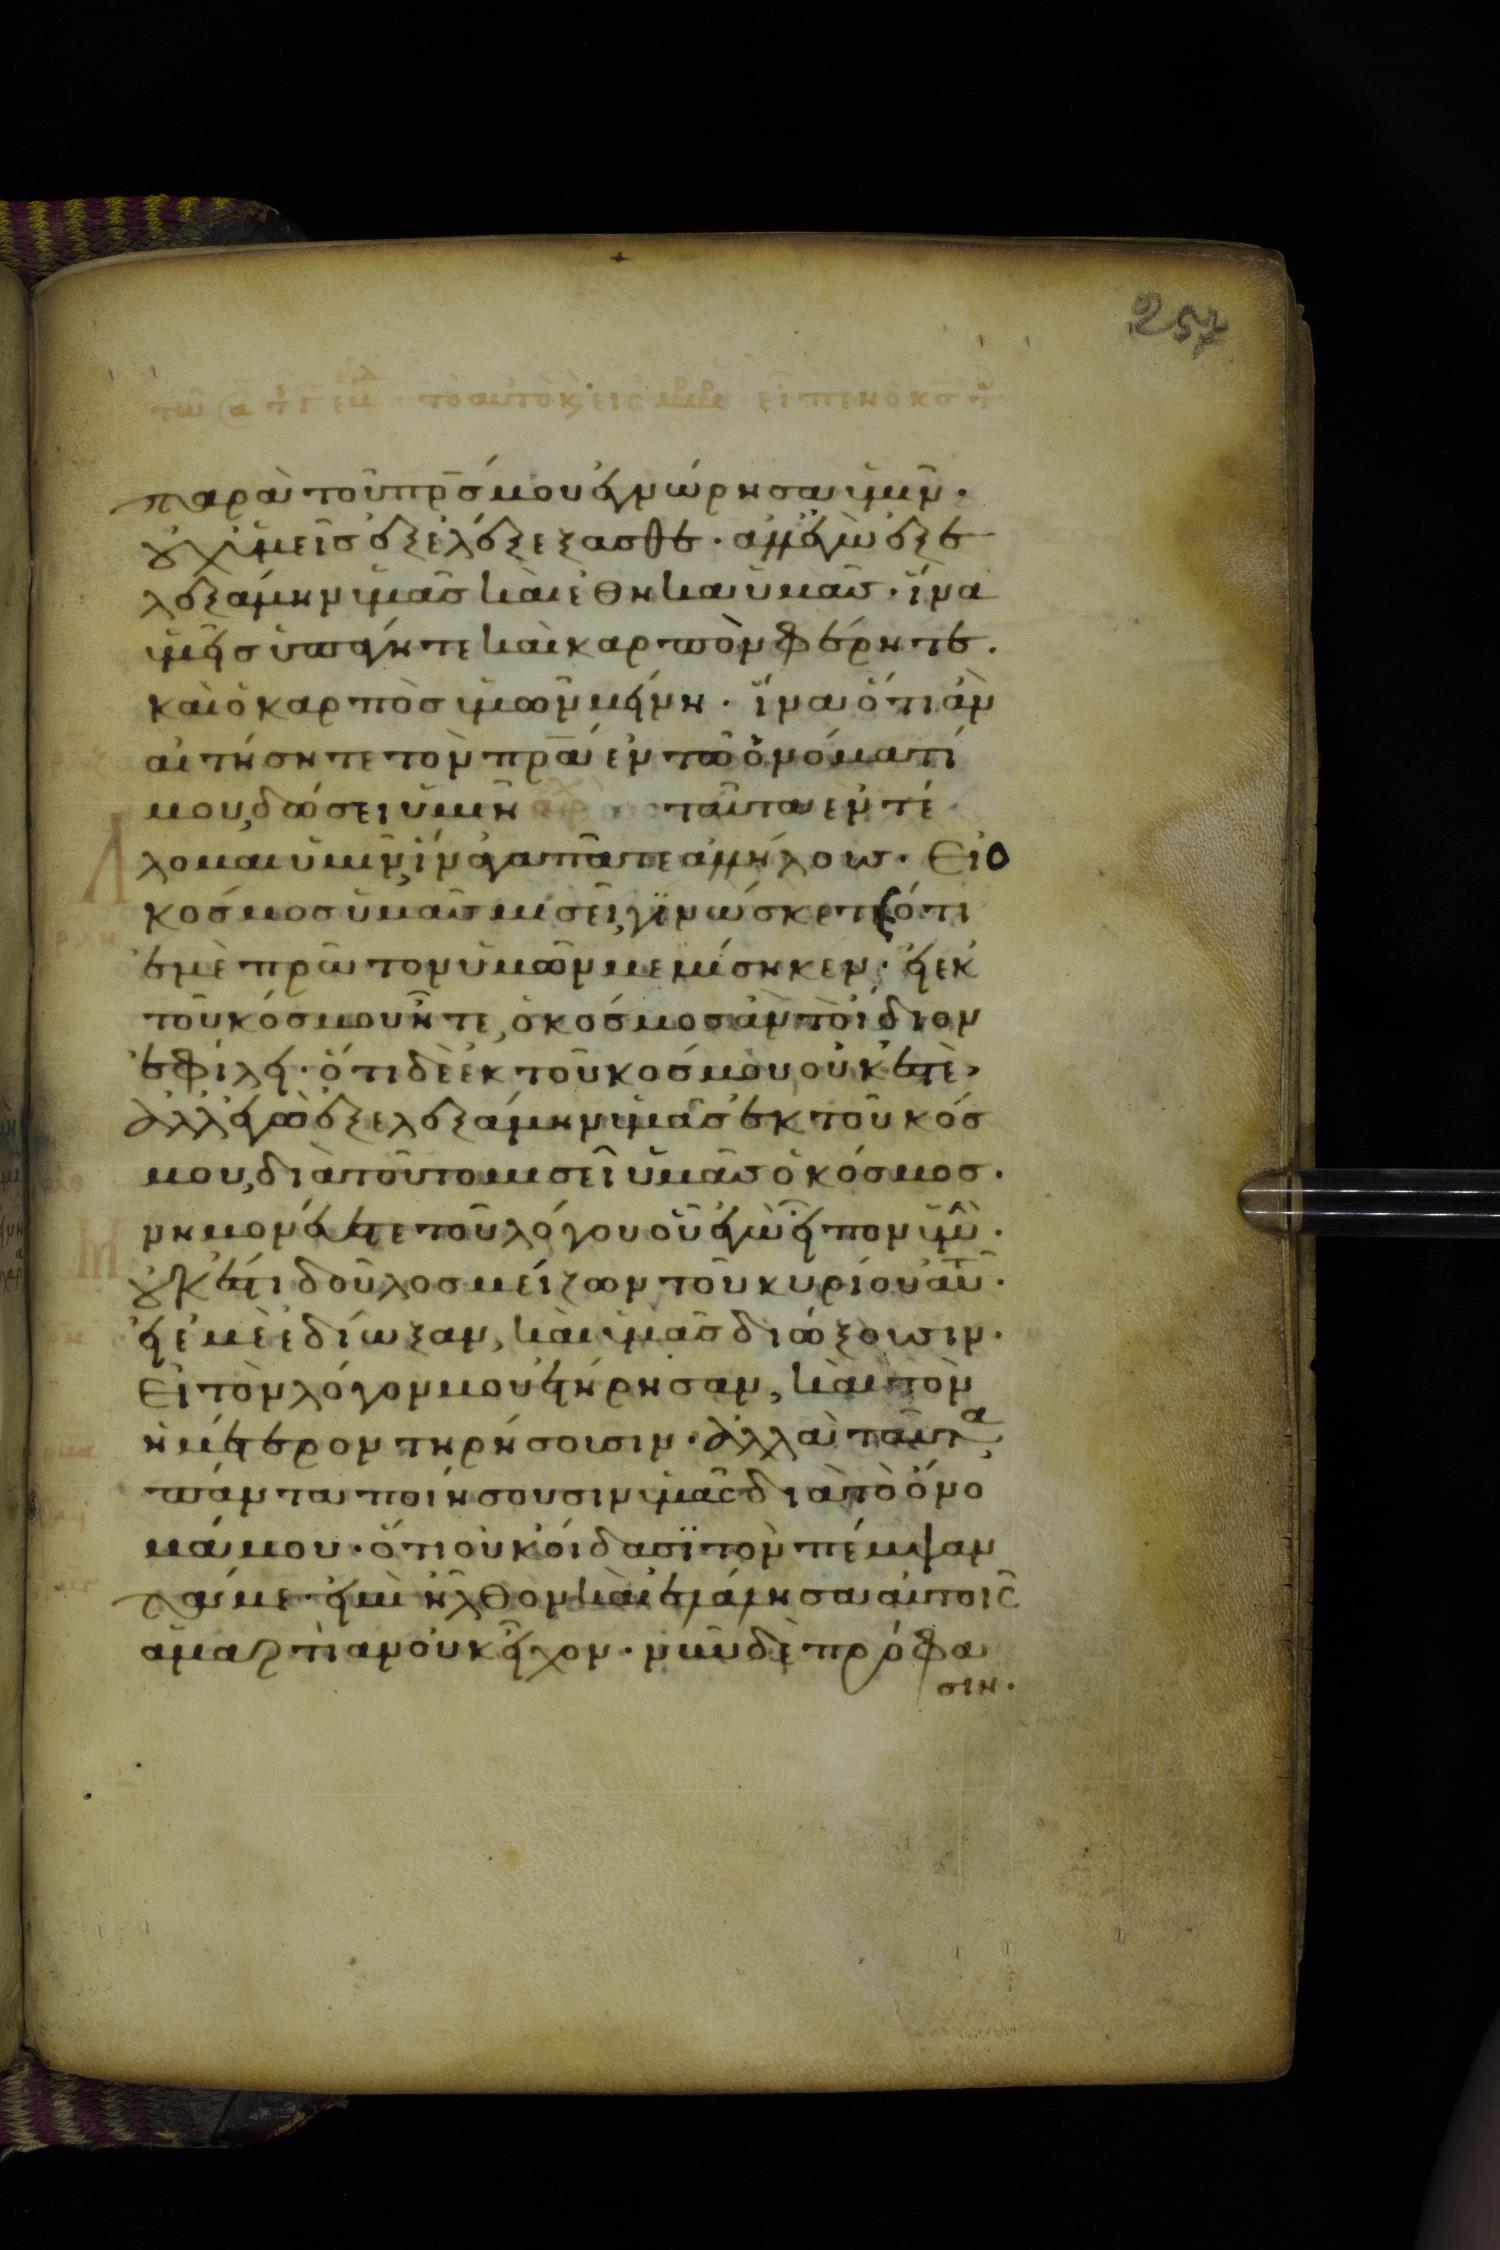 257
παρὰ τοῦ πρ̅σ μου ἐγνώρησα ὑμῖν·
οὐχ ὑμεῖσ με ἐξελέξασθε· ἀλλ' ἐγὼ ἐξε
λεξάμην ὑμᾶσ καὶ ἔθηκα ὑμᾶσ· ἵνα
ὑμεῖσ ὑπάγητε καὶ καρπὸν φέρητε.
καὶ ὁ καρπὸσ ὑμῶν μένη· ἵνα ὅτι ἀν
αἰτήσητε τὸν πρ̅α ἐν τῶ ὀνόματί
μου, δώσει ὑμῖν ταῦτα ἐντέ
λομαι ὑμῖν, ἵν' ἀγαπᾶτε ἀλλήλουσ· Εἰ ὁ
κόσμοσ ὑμᾶσ μισεῖ, γϊνώσκετε ὅτι
ἐμὲ πρῶτον ὑμῶν μεμίσηκεν· εἰ ἐκ
τοῦ κόσμου ἦτε, ὁ κοσμοσ ἀν τὸ ίδιον
ἐφίλει· ὅτι δὲ ἐκ τοῦ κοσμου οὐκ ἐστὲ,
ἀλλ' ἐγὼ ἐξελεξάμην ὑμᾶσ ἐκ τοῦ κόσ
μου, διὰ τοῦτο μισεῖ ὑμᾶσ ὁ κόσμοσ.
μνημονεύετε τοῦ λόγου οὗ ἐγὼ εἶπον ὑμῖν·
οὐκ ἔστι δοῦλοσ μείζων τοῦ κυρίου αὐτοῦ·
εἰ ἐμὲ ἐδίωξαν, καὶ ὑμᾶσ διώξουσιν.
Εἰ τὸν λόγον μου ἐτήρησαν, καὶ τὸν
ὑμέτερον τηρήσουσιν· ἀλλὰ ταῦτα
πάντα ποιήσουσιν ὑμᾶς διὰ τὸ ὄνο
μά μου· ὅτι οὐκ οίδασϊ τὸν πέμψαν
τά με· εἰ μὴ ἦλθον καὶ ἐλάλησα αὐτοῖς
ἁμαρτίαν οὐκ εἶχον· νῦν δὲ πρόφα
σιν.